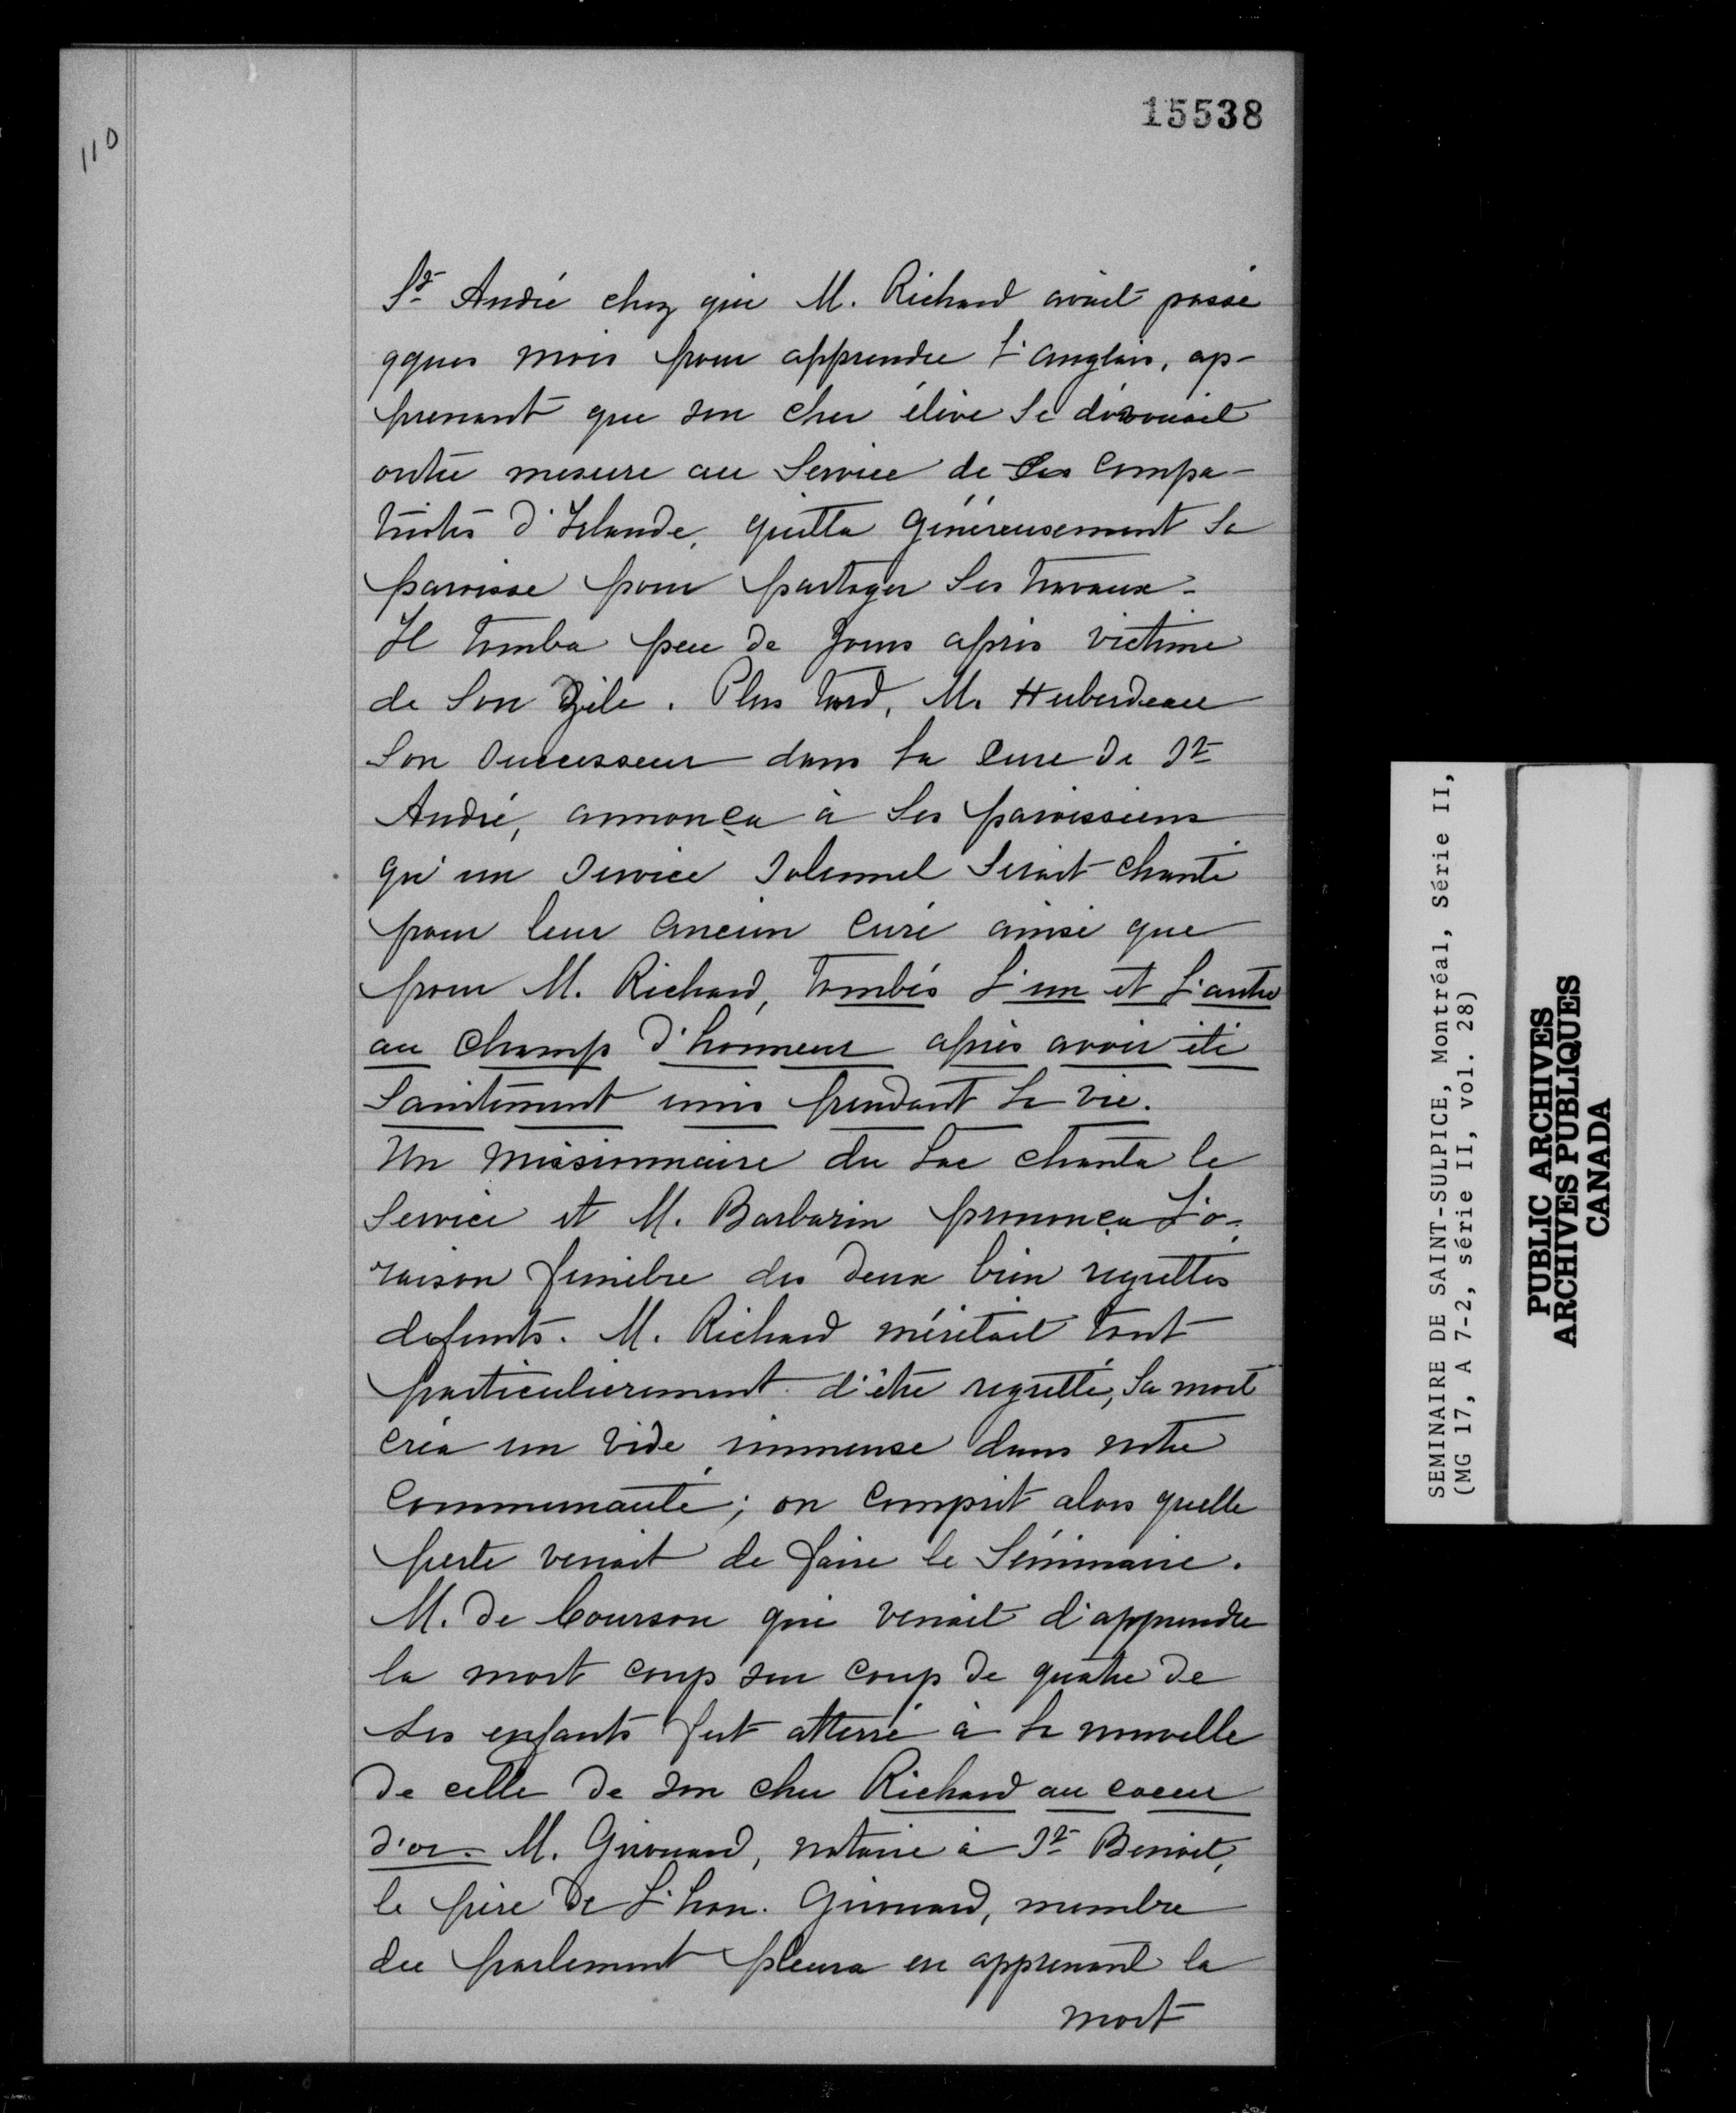 15538
110
St André chez qui M. Richard avait passé
qques mois pour apprendre l'anglais, ap-
prenant que son cher élève se dévouait
outre mesure au service de ses compa-
triotes d'Irlande, quitta généreusement sa
paroisse pour partager ses travaux.
Il tomba peu de jours après victime
de son zèle. Plus tard, M. Huberdeau
son successeur dans la cure de St
André, annonça à ses paroissiens
qu'un service solennel serait chanté
pour leur ancien curé ainsi que
pour M. Richard, tombés l'un et l'autre
au champ d'honneur après avoir été
saintement unis pendant la vie.
Un missionnaire du Lac chanta le
service et M. Barbarin prononça l'o-
raison funèbre des deux bien regrettés
defunts. M. Richard méritait tout
particulièrement d'être regretté, sa mort
créa un vide immense dans notre
communauté; on comprit alors quelle
perte venait de faire le Séminaire.
M. de Courson qui venait d'apprendre
la mort coup sur coup de quatre de
ses enfants fut atterré à la nouvelle
de celle de son cher Richard au coeur
d'or. M. Girouard, notaire à St Benoit,
le père de l'hon. Girouard, membre
du parlement pleura en apprenant la
mort
SEMINAIRE DE SAINT-SULPICE, Montréal, Série II,
(MG 17, A 7-2, série II, vol. 28)
PUBLIC ARCHIVES
ARCHIVES PUBLIQUES
CANADA